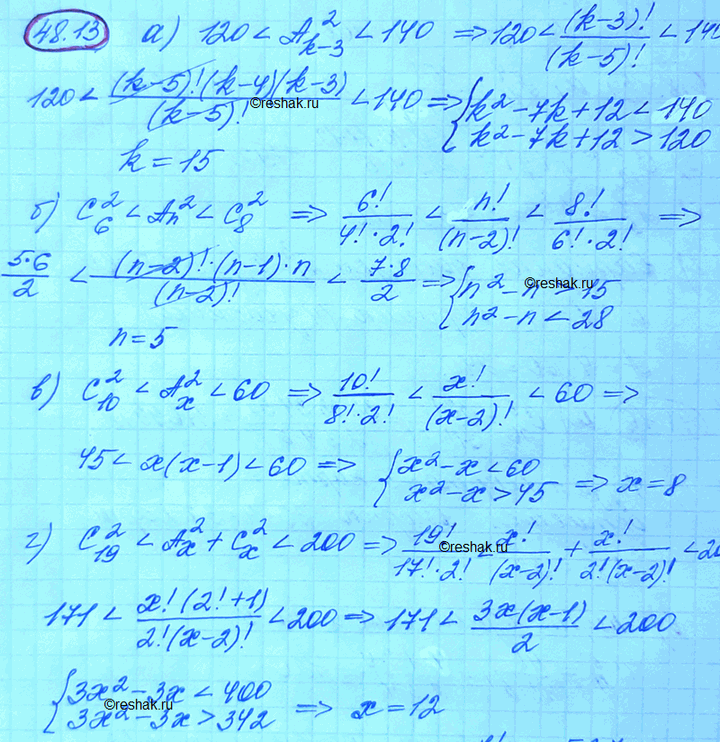 48.13 а) 120 < A²ₖ₋₃ < 140 => 120 < (k-3)!/(k-5)! < 140
120 < (k-5)!(k-4)(k-3)/(k-5)! < 140 => { k² - 7k + 12 < 140
k² - 7k + 12 > 120
©reshak.ru
k = 15
б) C²₆ < Aₙ² < C²₈ => 6!/(4!·2!) < n!/(n-2)! < 8!/(6!·2!) =>
5·6/2 < (n-2)!·(n-1)·n/(n-2)! < 7·8/2 => { n² - n > 15
n² - n < 28
©reshak.ru
n = 5
в) C²₁₀ < A²ₓ < 60 => 10!/(8!·2!) < x!/(x-2)! < 60 =>
45 < x(x-1) < 60 => { x² - x < 60
x² - x > 45 => x = 8
г) C²₁₉ < A²ₓ + C²ₓ < 200 => 19!/(17!·2!) < x!/(x-2)! + x!/(2!(x-2)!) < 20
©reshak.ru
171 < x!(2!+1)/(2!(x-2)!) < 200 => 171 < 3x(x-1)/2 < 200
{ 3x² - 3x < 400
3x² - 3x > 342 => x = 12
©reshak.ru